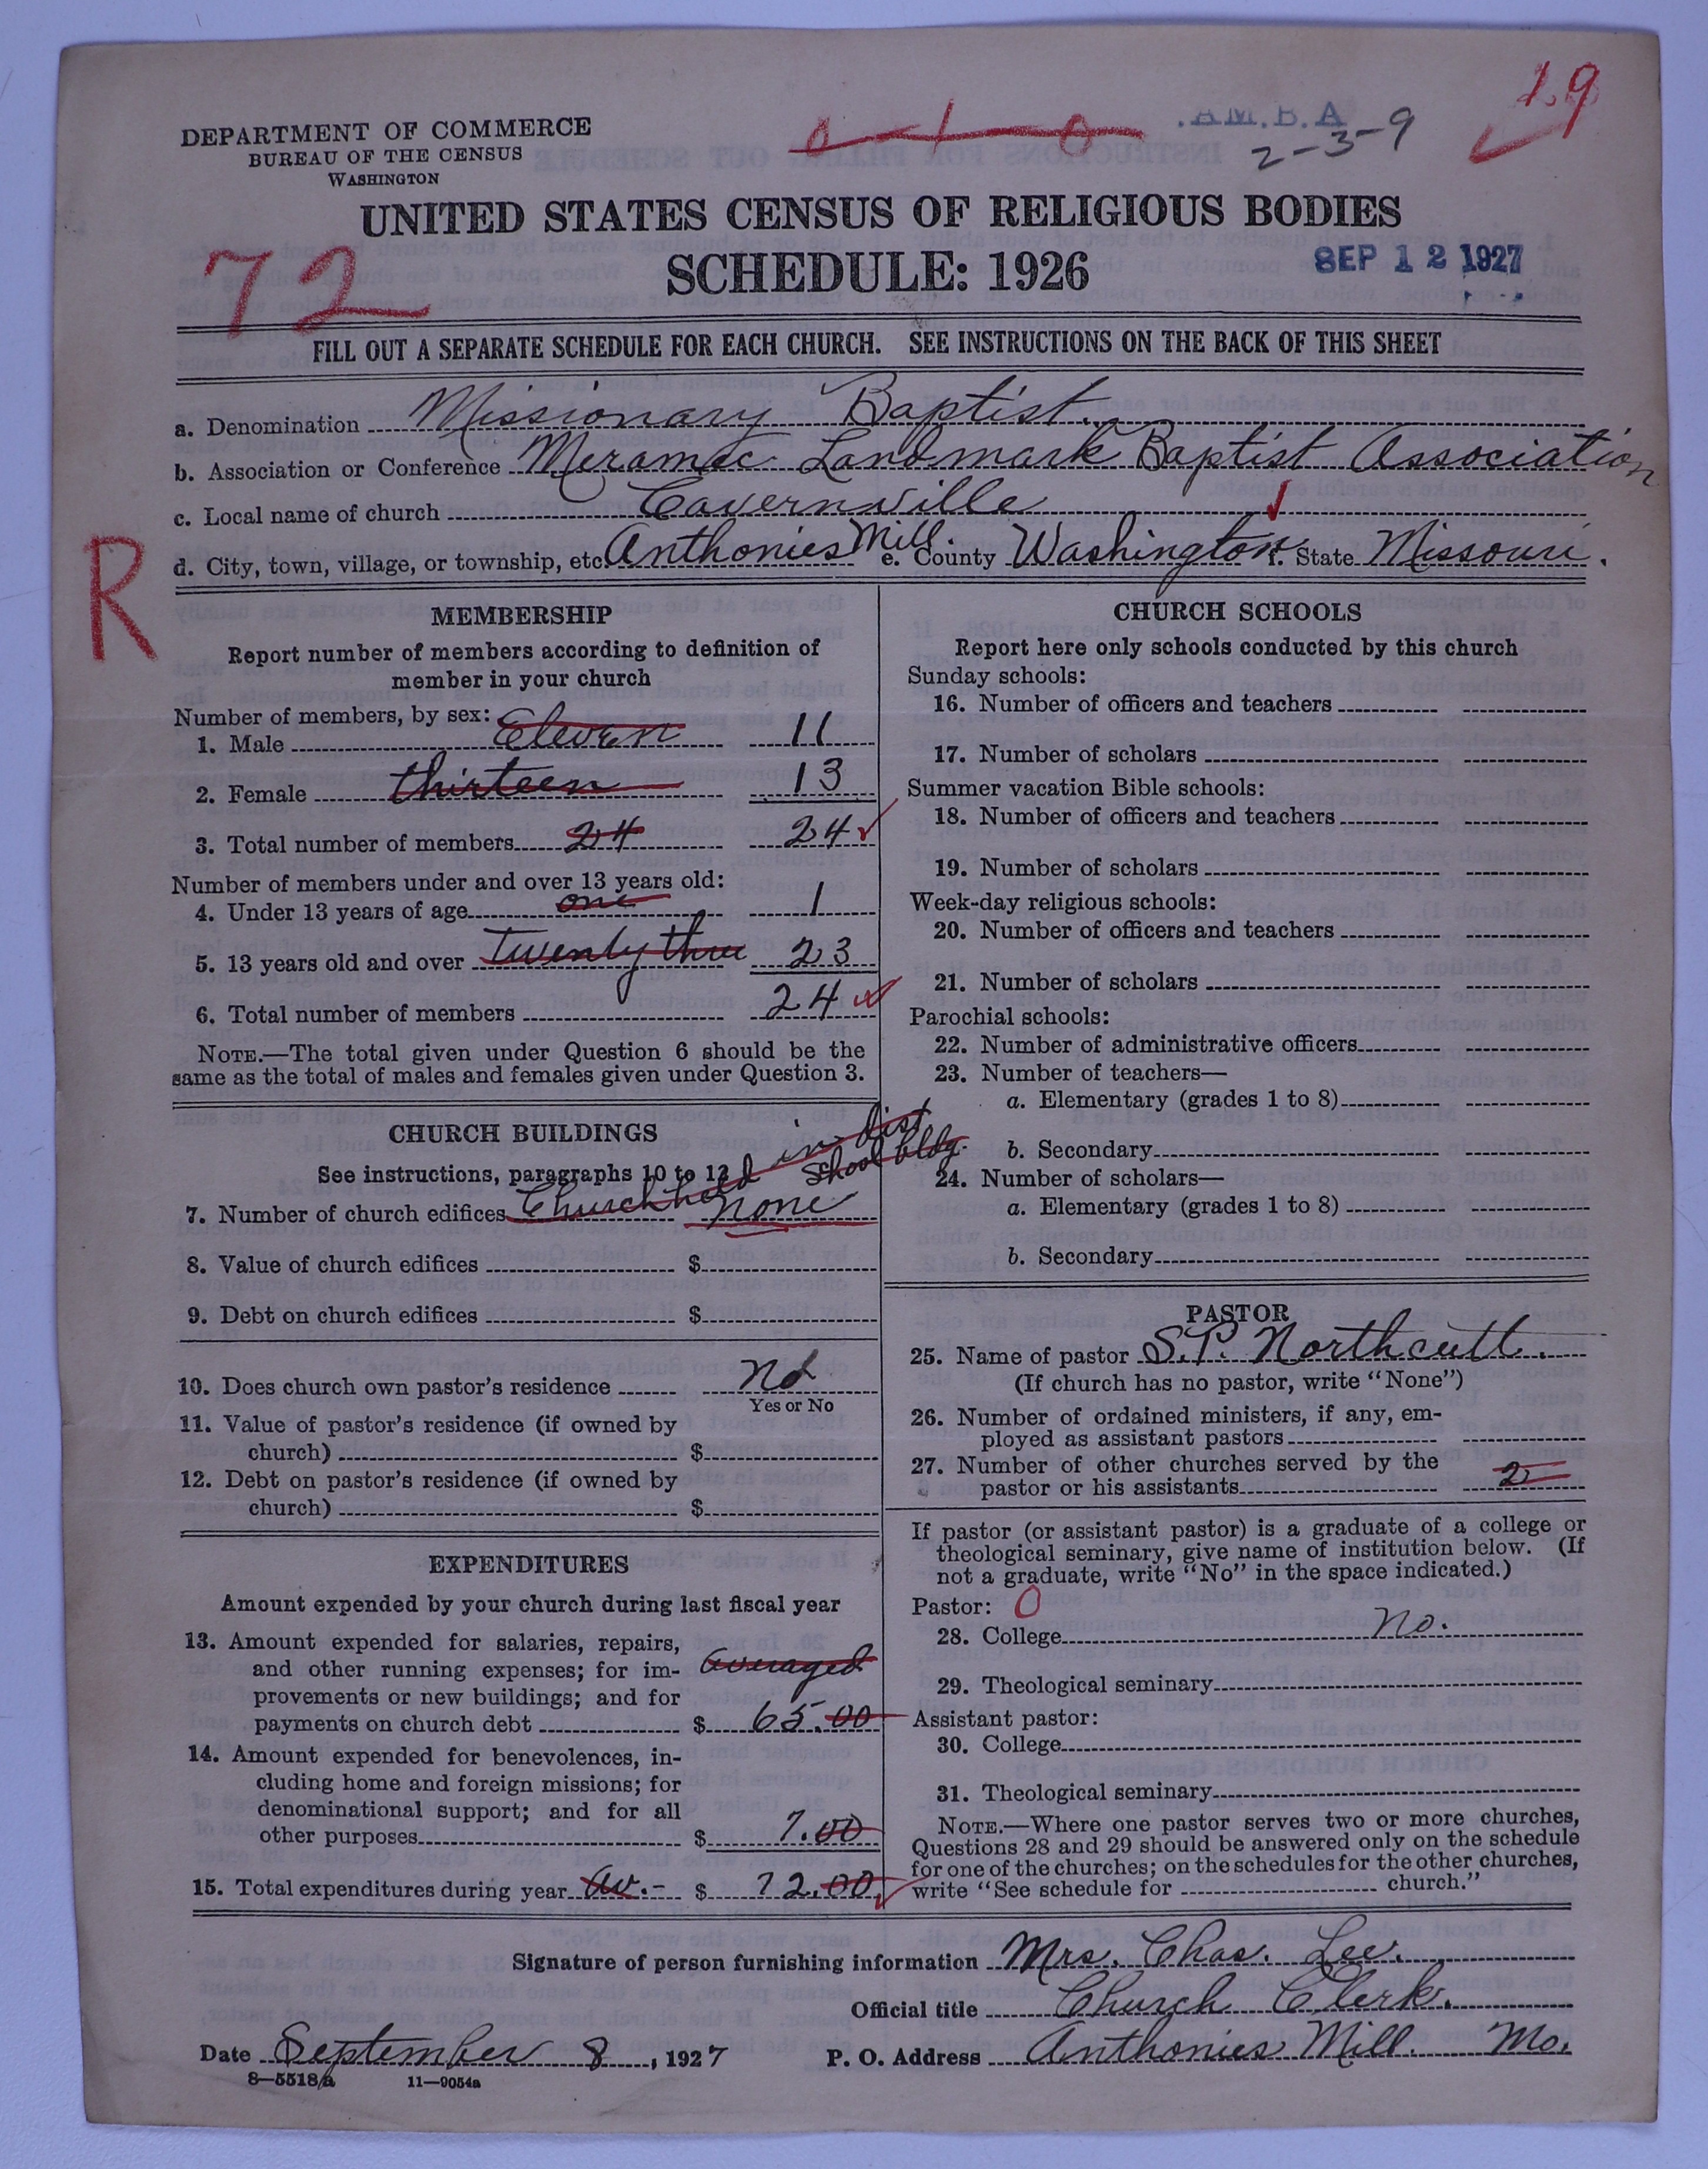 DEPARTMENT OF COMMERCE
BUREAU OF THE CENSUS
WASHINGTON
A.M.B.A.
2-3-9
19
UNITED STATES CENSUS OF RELIGIOUS BODIES
SCHEDULE: 1926
SEP 12 1927
72
FILL OUT A SEPARATE SCHEDULE FOR EACH CHURCH. SEE INSTRUCTIONS ON THE BACK OF THIS SHEET
a. Denomination Missionary Baptist.
b. Association or Conference Meramec Landmark Baptist Association
c. Local name of church Cavernville
d. City, town, village, or township, etc. Anthonies Mill. e. County Washington f. State Missouri.
R
MEMBERSHIP
Report number of members according to definition of
member in your church
Number of members, by sex:
1. Male Eleven 11
2. Female thirteen 13
3. Total number of members 24 24
Number of members under and over 13 years old:
4. Under 13 years of age one 1
5. 13 years old and over Twenty three 23
6. Total number of members 24
NOTE.—The total given under Question 6 should be the
same as the total of males and females given under Question 3.
CHURCH BUILDINGS
See instructions, paragraphs 10 to 12
7. Number of church edifices Church held in dist school bldg. none
8. Value of church edifices $
9. Debt on church edifices $
10. Does church own pastor's residence No
Yes or No
11. Value of pastor's residence (if owned by
church) $
12. Debt on pastor's residence (if owned by
church) $
EXPENDITURES
Amount expended by your church during last fiscal year
13. Amount expended for salaries, repairs,
and other running expenses; for im-
provements or new buildings; and for
payments on church debt averaged $ 65.00
14. Amount expended for benevolences, in-
cluding home and foreign missions; for
denominational support; and for all
other purposes $ 7.00
15. Total expenditures during year Av.- $ 72.00
CHURCH SCHOOLS
Report here only schools conducted by this church
Sunday schools:
16. Number of officers and teachers
17. Number of scholars
Summer vacation Bible schools:
18. Number of officers and teachers
19. Number of scholars
Week-day religious schools:
20. Number of officers and teachers
21. Number of scholars
Parochial schools:
22. Number of administrative officers
23. Number of teachers—
a. Elementary (grades 1 to 8)
b. Secondary
24. Number of scholars—
a. Elementary (grades 1 to 8)
b. Secondary
PASTOR
25. Name of pastor S.P. Northcutt.
(If church has no pastor, write "None")
26. Number of ordained ministers, if any, em-
ployed as assistant pastors
27. Number of other churches served by the
pastor or his assistants 2
If pastor (or assistant pastor) is a graduate of a college or
theological seminary, give name of institution below. (If
not a graduate, write "No" in the space indicated.)
Pastor: 0
28. College No.
29. Theological seminary
Assistant pastor:
30. College
31. Theological seminary
NOTE.—Where one pastor serves two or more churches,
Questions 28 and 29 should be answered only on the schedule
for one of the churches; on the schedules for the other churches,
write "See schedule for church."
Signature of person furnishing information Mrs. Chas. Lee.
Official title Church Clerk.
Date September 8, 1927 P. O. Address Anthonies Mill. Mo.
8—5518a 11—9054a